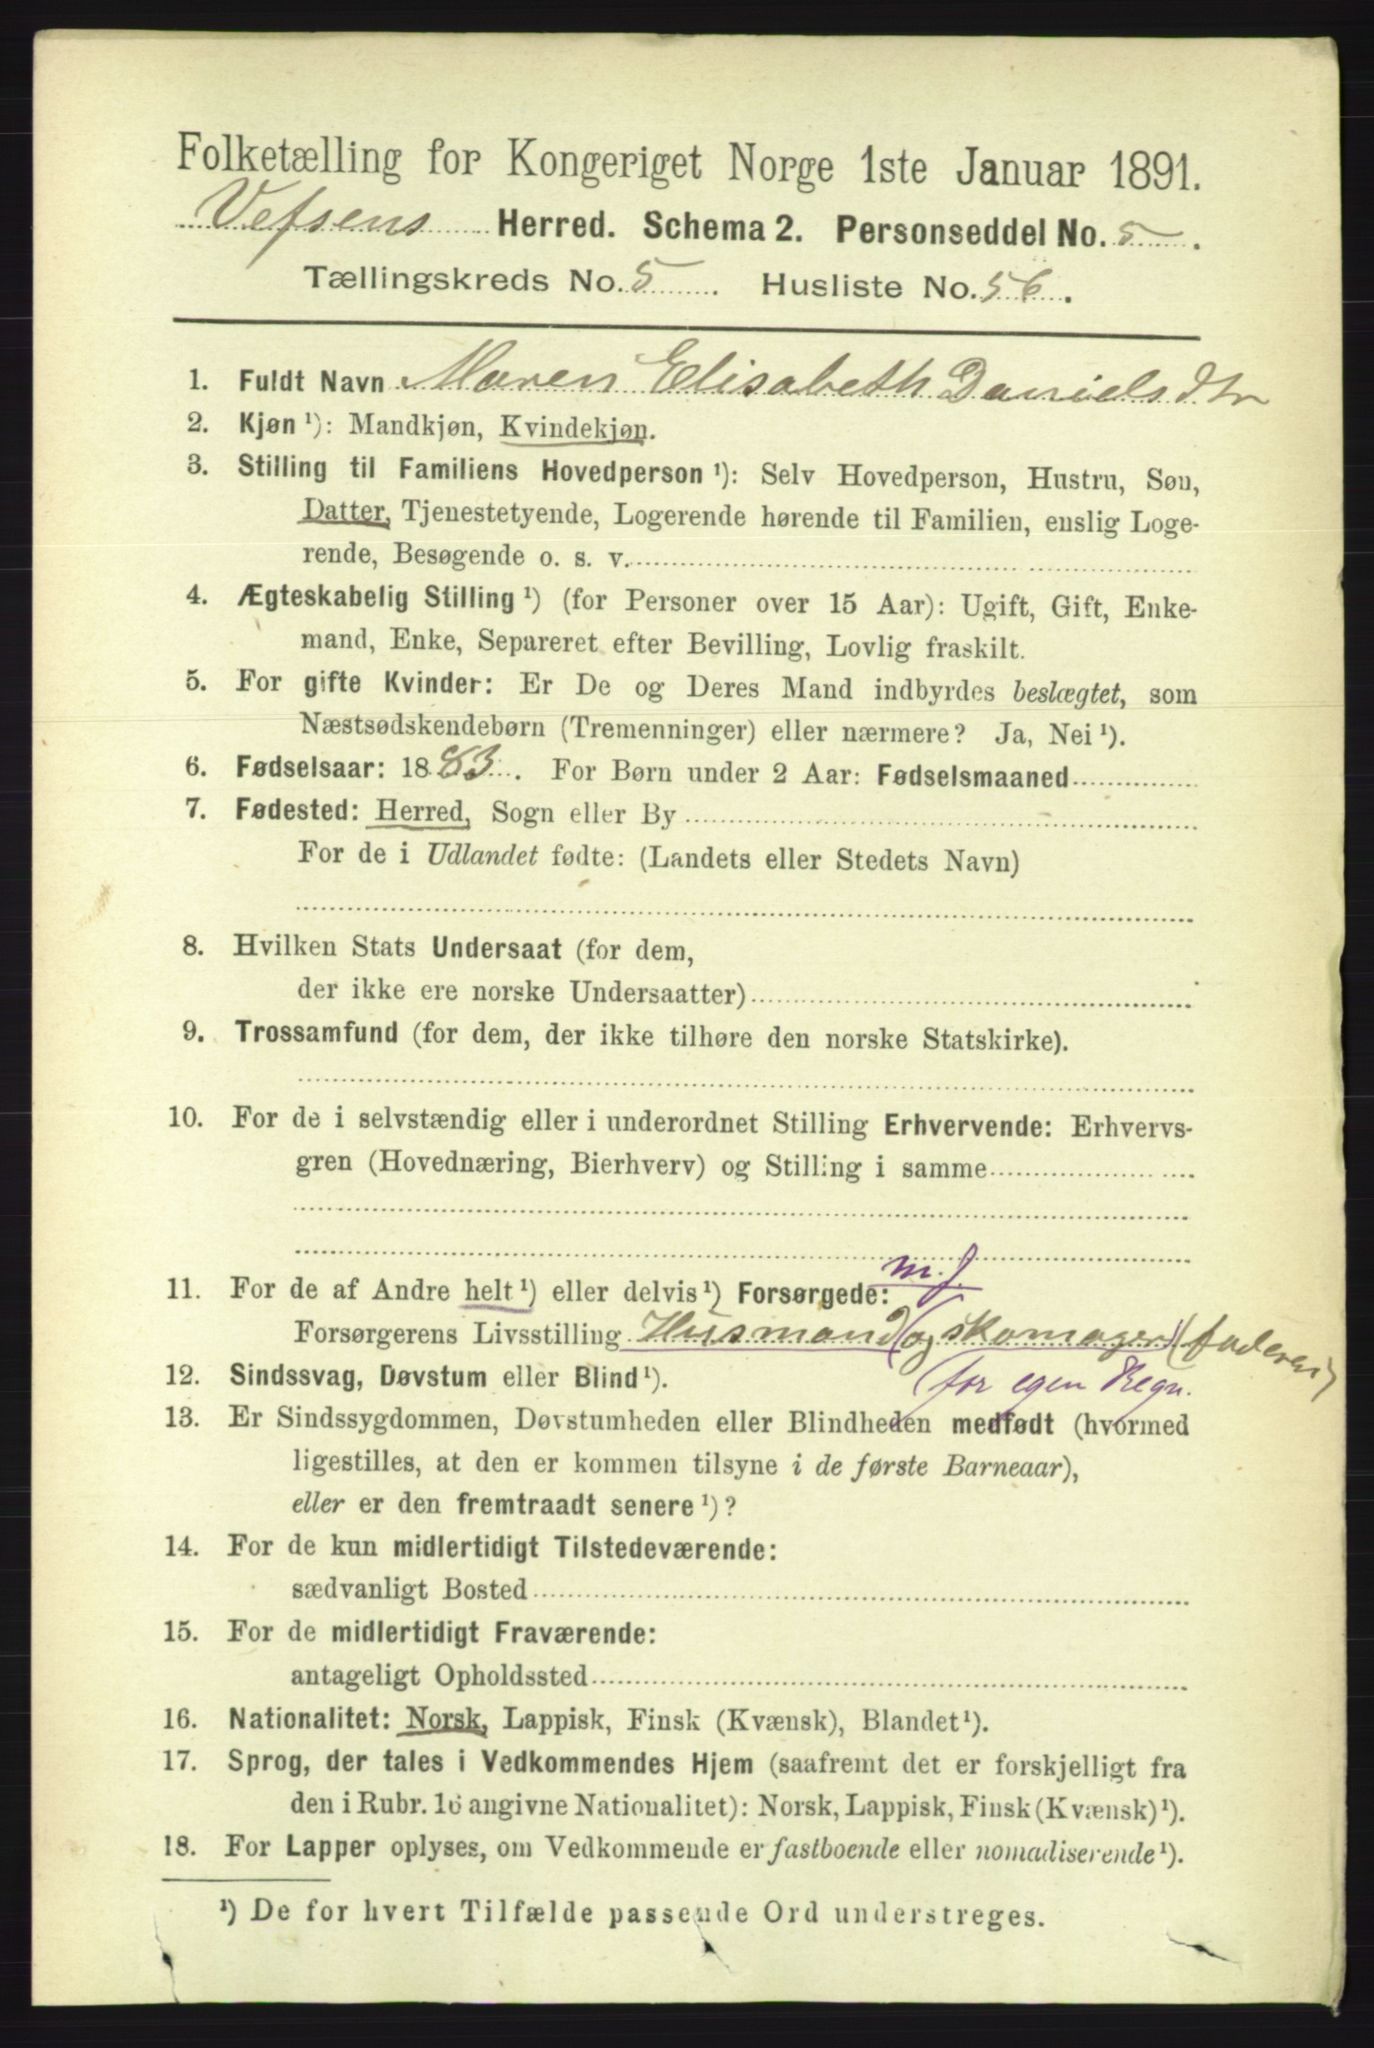 Folketælling for Kongeriget Norge 1ste Januar 1891.
Vefsens Herred. Schema 2. Personseddel No. 5.
Tællingskreds No. 5. Husliste No. 56.
1. Fuldt Navn Maren Elisabeth Danielsdtr
2. Kjøn ¹): Mandkjøn, Kvindekjøn.
3. Stilling til Familiens Hovedperson ¹): Selv Hovedperson, Hustru, Søn,
Datter, Tjenestetyende, Logerende hørende til Familien, enslig Loge-
rende, Besøgende o. s. v.
4. Ægteskabelig Stilling ¹) (for Personer over 15 Aar): Ugift, Gift, Enke-
mand, Enke, Separeret efter Bevilling, Lovlig fraskilt.
5. For gifte Kvinder: Er De og Deres Mand indbyrdes beslægtet, som
Næstsødskendebørn (Tremenninger) eller nærmere? Ja, Nei ¹).
6. Fødselsaar: 1883. For Børn under 2 Aar: Fødselsmaaned
7. Fødested: Herred, Sogn eller By
For de i Udlandet fødte: (Landets eller Stedets Navn)
8. Hvilken Stats Undersaat (for dem,
der ikke ere norske Undersaatter)
9. Trossamfund (for dem, der ikke tilhøre den norske Statskirke).
10. For de i selvstændig eller i underordnet Stilling Erhvervende: Erhvervs-
gren (Hovednæring, Bierhverv) og Stilling i samme
m. J.
11. For de af Andre helt ¹) eller delvis ¹) Forsørgede:
Forsørgerens Livsstilling Husmand (og skomager) (faderen)
(for egen Regn.
12. Sindssvag, Døvstum eller Blind ¹).
13. Er Sindssygdommen, Døvstumheden eller Blindheden medfødt (hvormed
ligestilles, at den er kommen tilsyne i de første Barneaar),
eller er den fremtraadt senere ¹)?
14. For de kun midlertidigt Tilstedeværende:
sædvanligt Bosted
15. For de midlertidigt Fraværende:
antageligt Opholdssted
16. Nationalitet: Norsk, Lappisk, Finsk (Kvænsk), Blandet ¹).
17. Sprog, der tales i Vedkommendes Hjem (saafremt det er forskjelligt fra
den i Rubr. 16 angivne Nationalitet): Norsk, Lappisk, Finsk (Kvænsk) ¹).
18. For Lapper oplyses, om Vedkommende er fastboende eller nomadiserende ¹).
¹) De for hvert Tilfælde passende Ord understreges.